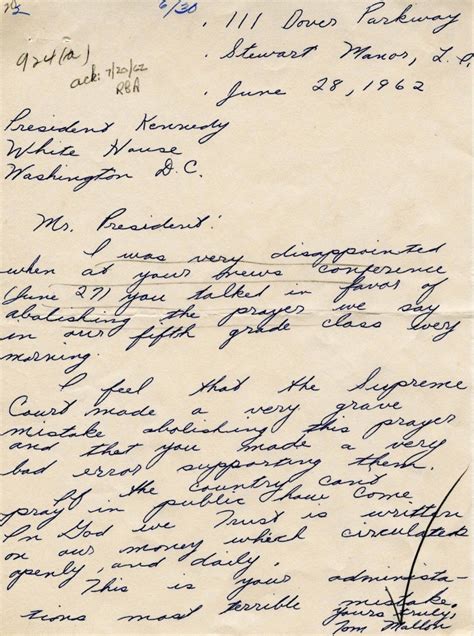 6/30
111 Dover Parkway
924(a)
Stewart Manor, L.I.
ack: 7/20/62
RBA
June 28, 1962
President Kennedy
White House
Washington D.C.
Mr. President:
I was very disappointed
when at your news conference
(June 27) you talked in favor of
abolishing the prayer we say
in our fifth grade class every
morning.
I feel that the Supreme
Court made a very grave
mistake abolishing this prayer
and that you made a very
bad error supporting them.
If the country can't
pray in public how come
In God we Trust is written
on our money which circulates
openly, and daily,
This is your administa-
tions most terrible mistake.
Yours truly,
Tom Mallon